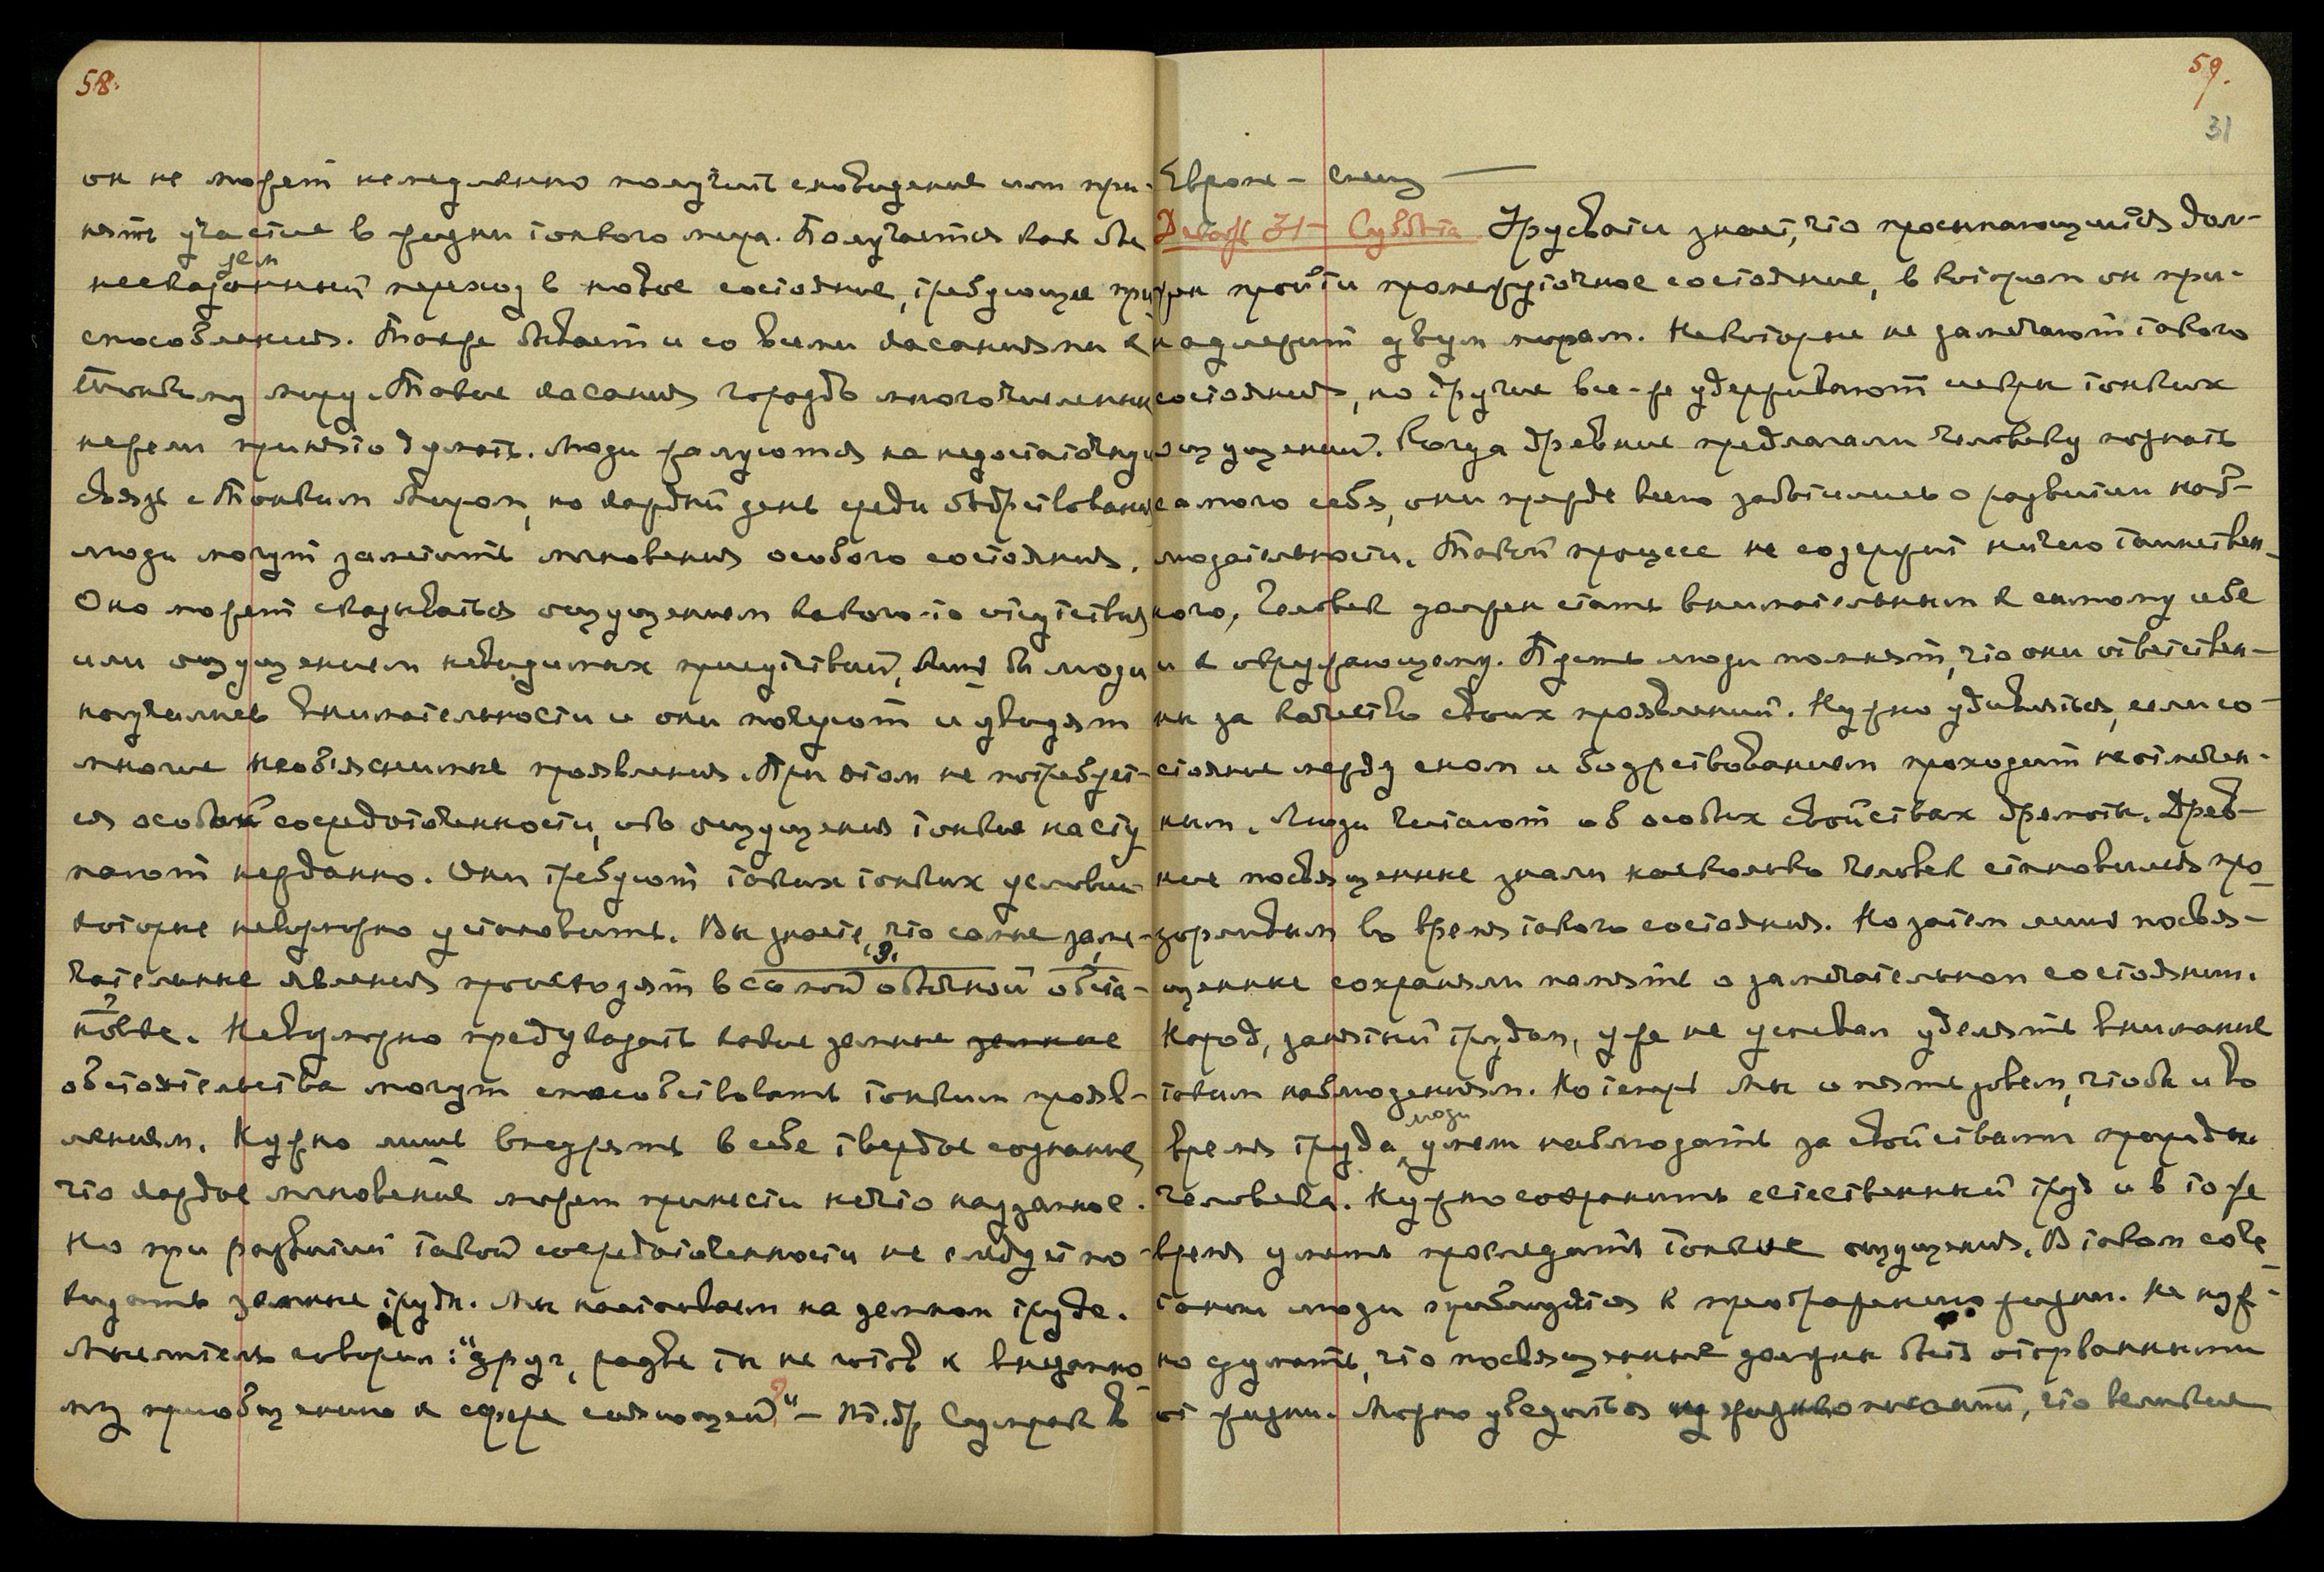 58.
он не может немедленно получить сновидение или при-
нять участие в жизни тонкого мира. Получается как бы
нежданный переход в новое состояние, требующее при
способления. Также бывает и со всеми касаниями к
Тонкому миру. Такие касания гораздо многочисленны
нежели принято думать. Люди жалуются на недостаточную
связь с Тонким Миром, но каждый день среди бодрствования
люди могут заметить мгновения особого состояния.
Оно может сказываться ощущением какого-то отсутствия
или ощущением невидимых присутствий, лишь бы люди
научились внимательности и они почуют и увидят
многие необъяснимые проявления. При этом не потребует-
ся особой сосредоточенности, ибо ощущения тонкие насту
пают нежданно. Они требуют таких тонких условий
которые невозможно установить. Вы знаете, что самые заме-
чательные явления происходят в самой обычной обста-
новке. Невозможно предуказать какие земные земные
обстоятельства могут способствовать тонким прояв-
лениям. Нужно лишь внедрять в себе твердое сознание,
что каждое мгновение может принести нечто надземное.
Но при развитии такой сосредоточенности не следует по-
кидать земные труды. Мы настаиваем на земном труде.
Мыслитель говорил: "друг, разве ты не готов к внезапно
му приобщению к сфере сияющей?" — Сумрак в
59.
31
Европе —
Декабрь 31 — Суббота Урусвати знает, что просыпающийся дол-
жен пройти промежуточное состояние, в котором он при-
надлежит двум мирам. Некоторые не замечают такого
состояния, но другие все-же удерживают искры тонких
ощущений. Когда древние предлагали человеку познать
самого себя, они прежде всего заботились о развитии наб-
людательности. Такой процесс не содержит ничего таинствен-
ного, человек должен стать внимательным к самому себе
и к окружающему. Пусть люди помнят, что они ответствен-
ны за качество своих проявлений. Нужно удивляться, если со-
стояние между сном и бодрствованием проходит неотмечен-
ным. Люди читают об особых свойствах дремоты. Древ-
ние посвященные знали насколько человек становился про
зорливым во время такого состояния. Но затем лишь посвя-
щенные сохраняли память о замечательном состоянии.
Народ, занятый трудом, уже не успевал уделять внимание
таким наблюдениям. Но теперь Мы опять зовем, чтобы и во
время труда люди умели наблюдать за свойствами природы
человека. Нужно сохранить естественный труд и в то же
время уметь проследить тонкие ощущения. В таком соче
тании люди приблизятся к преображению жизни. Не нуж-
но думать, что посвященные должны быть оторванными
от жизни. Можно убедиться из что великие